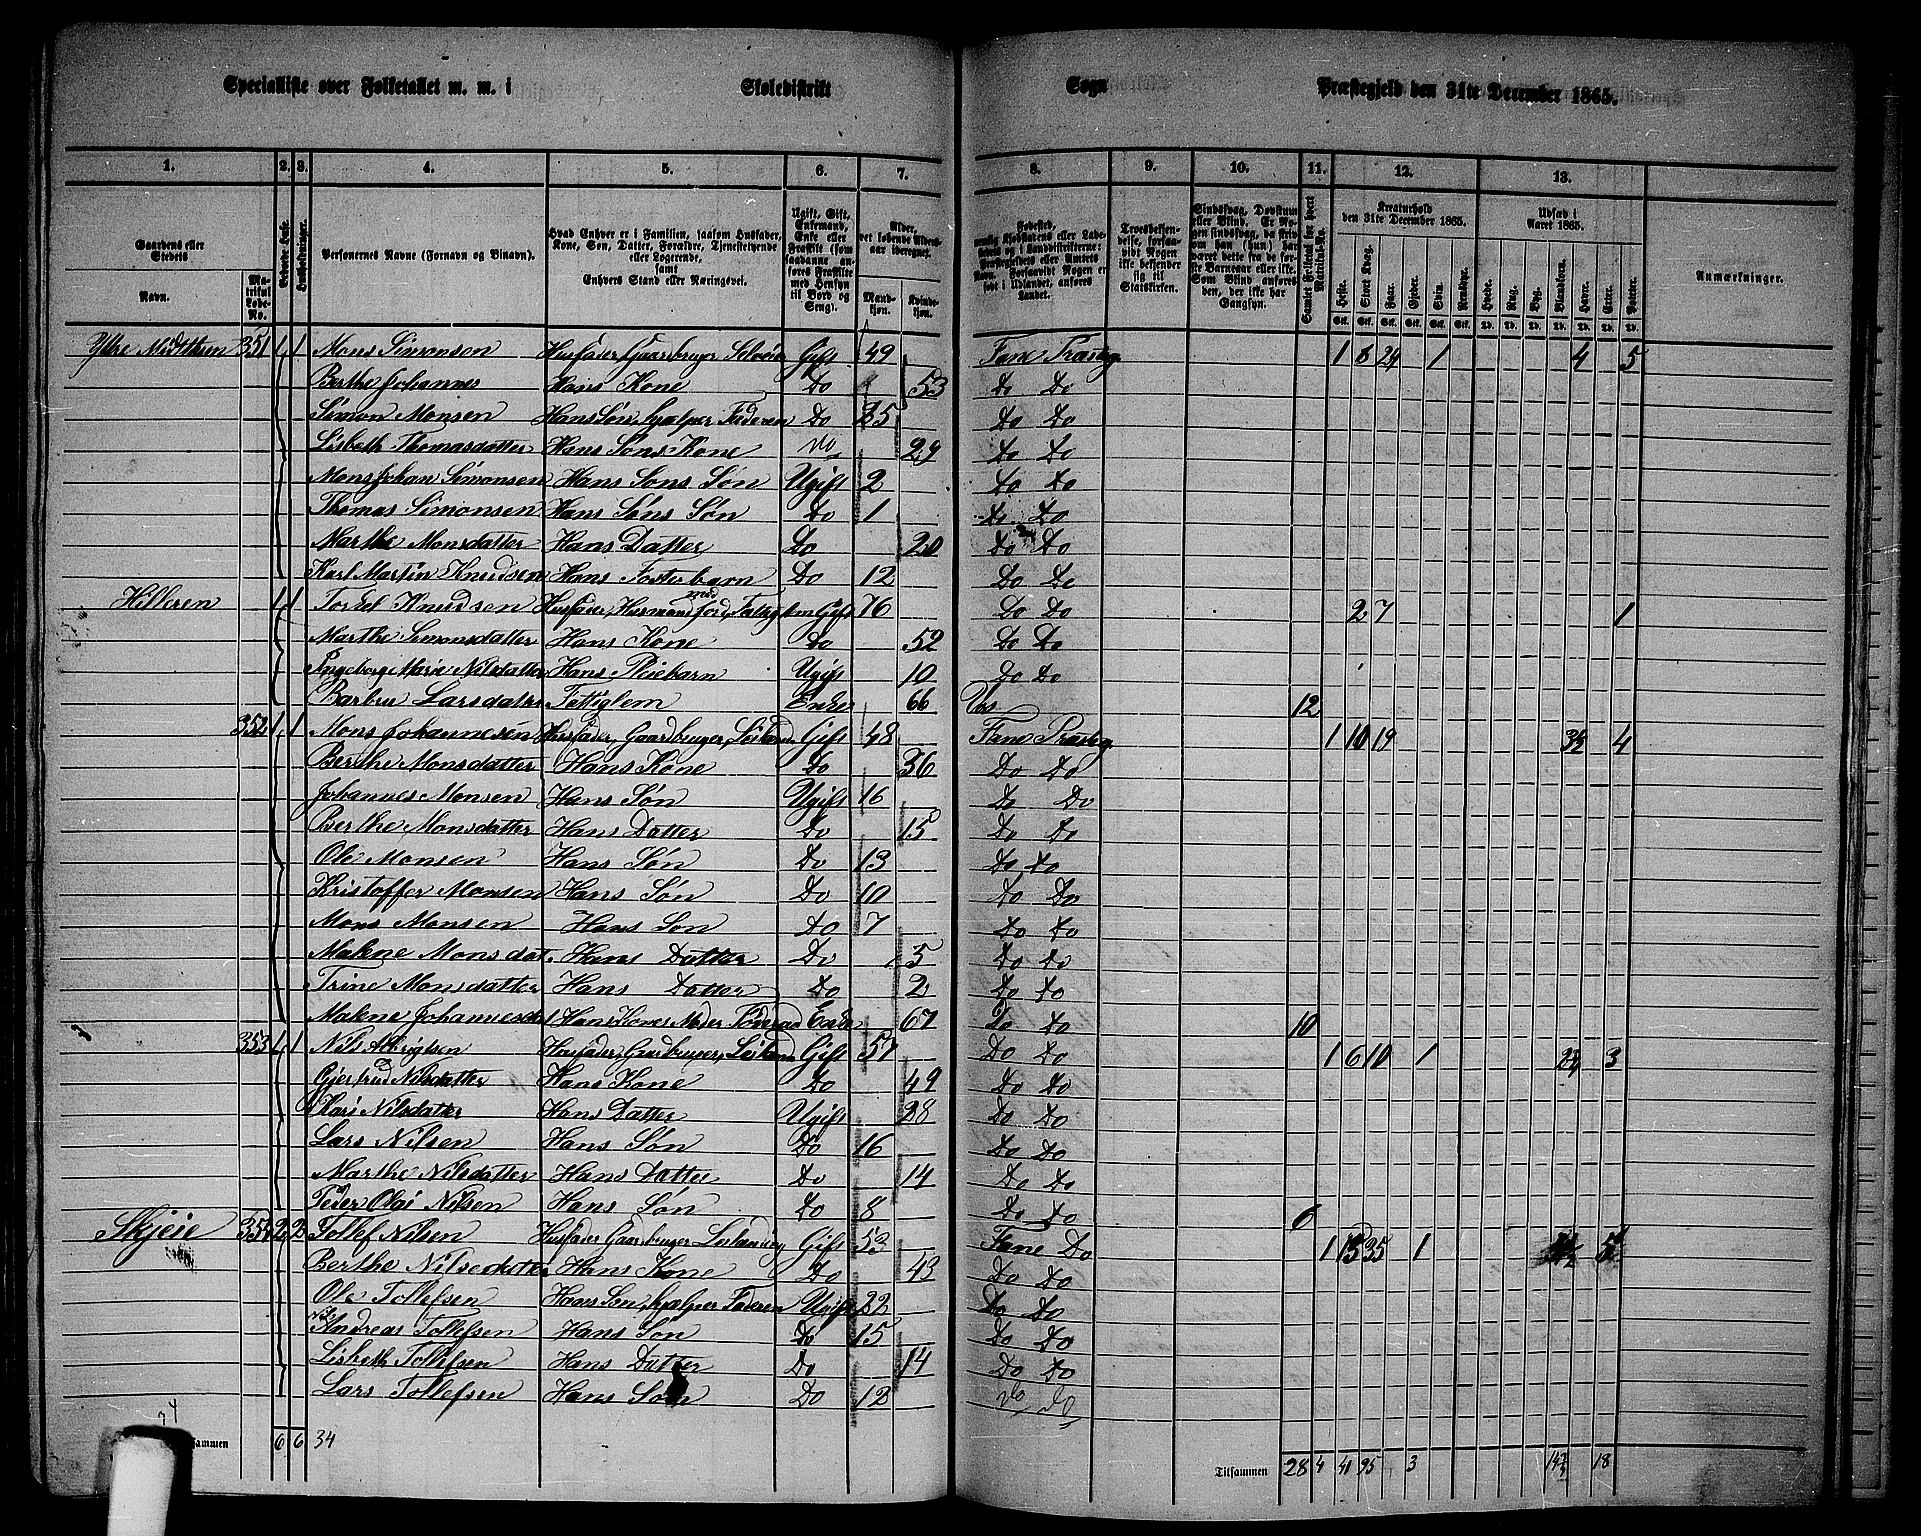 Specialliste over Folketallet m. m. i Skoledistrikt Sogn Præstegjeld den 31te December 1865.
1. 2. 3. 4. 5. 6. 7. 8. 9. 10. 11. 12. 13.
Gaardens eller Stedets
Navn.
Matrikul Løbe-No.
Beboede Huse.
Husholdninger.
Personernes Navne (Fornavn og Binavn).
Hvad Enhver er i Familien, saasom Husfader, Kone, Søn, Datter, Forældre, Tjenestetyende eller Logerende, samt Enhvers Stand eller Næringsvei.
Ugift, Gift, Enkemand, Enke eller Fraskilt (som saadanne anføres Fraskilte med Hensyn til Bord og Seng).
Alder, det løbende Aldersaar iberegnet.
Mandkjøn.
Kvindekjøn.
Troesbekjendelse, forsaavidt Nogen ikke bekjender sig til Statskirken.
Sindssvag, Døvstum eller Blind. Er Nogen sindssvag, da skrives om han (hun) har været dette fra de første Barneaar eller ikke. Som Blind anføres den, der ikke har Gangsyn.
Samlet Folketal for hvert Matrikul-No.
Kreaturhold den 31te December 1865.
Heste. Stort Kvæg. Faar. Gjeder. Sviin. Rensdyr.
Udsæd i Aaret 1865.
Hvede. Rug. Byg. Blandkorn. Havre. Erter. Poteter.
Anmærkninger.
Ytre Midtthun 351 1 1 Mons Simonsen Husfader, Gaardbruger Selveier Gift 49 Fane Præsteg 1 8 24 1 4 5
Berthe Johannes Hans Kone Do 53 Do Do
Simon Monsen Hans Søn, hjælper Faderen Do 25 Do Do
Lisbeth Thomasdatter Hans Søns Kone Do 29 Do Do
Mons Johan Simonsen Hans Søns Søn Ugift 2 Do Do
Thomas Simonsen Hans Søns Søn Do 1 Do Do
Marthe Monsdatter Hans Datter Do 20 Do Do
Karl Martin Knudsen Hans Fosterbarn Do 12 Do Do
Hilleren 1 1 Torkel Knudsen Husfader, Husmand med Jord, Fattiglem Gift 76 Do Do 2 7 1
Marthe Simonsdatter Hans Kone Do 52 Do Do
Ingeborg Marie Nilsdatter Hans Pleiebarn Ugift 10 Do Do
Barbru Larsdatter Fattiglem Enke 66 Vos 12
352 1 1 Mons Johannesen Husfader, Gaardbruger, Leilænd Gift 48 Fane Præsteg 1 10 19 3½ 4
Berthe Monsdatter Hans Kone Do 36 Do Do
Johannes Monsen Hans Søn Ugift 16 Do Do
Berthe Monsdatter Hans Datter Do 15 Do Do
Ole Monsen Hans Søn Do 13 Do Do
Kristoffer Monsen Hans Søn Do 10 Do Do
Mons Monsen Hans Søn Do 7 Do Do
Malene Monsdat. Hans Datter Do 5 Do Do
Trine Monsdatter Hans Datter Do 2 Do Do
Malene Johannesdat Hans Kones Moder, Føderaad Enke 67 Do Do 10
353 1 1 Nils Hans Husfader, Gaardbruger, Leilænd Gift 57 Do Do 1 6 10 1 3
Gjertrud Nilsdatter Hans Kone Do 49 Do Do
Kari Nilsdatter Hans Datter Ugift 28 Do Do
Lars Nilsen Hans Søn Do 16 Do Do
Marthe Nilsdatter Hans Datter Do 14 Do Do
Peder Olai Nilsen Hans Søn Do 8 Do Do 6
Skjeie 354 2 2 Tollef Nilsen Husfader Gaardbruger Leilænding Gift 53 Fane Do 1 15 35 1 5
Berthe Nilsdatter Hans Kone Do 43 Do Do
Ole Tollefsen Hans Søn, hjælper Faderen Ugift 22 Do Do
Andreas Tollefsen Hans Søn Do 15 Do Do
Lisbeth Tollefsen Hans Datter Do 14 Do Do
Lars Tollefsen Hans Søn Do 12 Do Do
6 6 34
Tilsammen 28 4 41 95 3 18